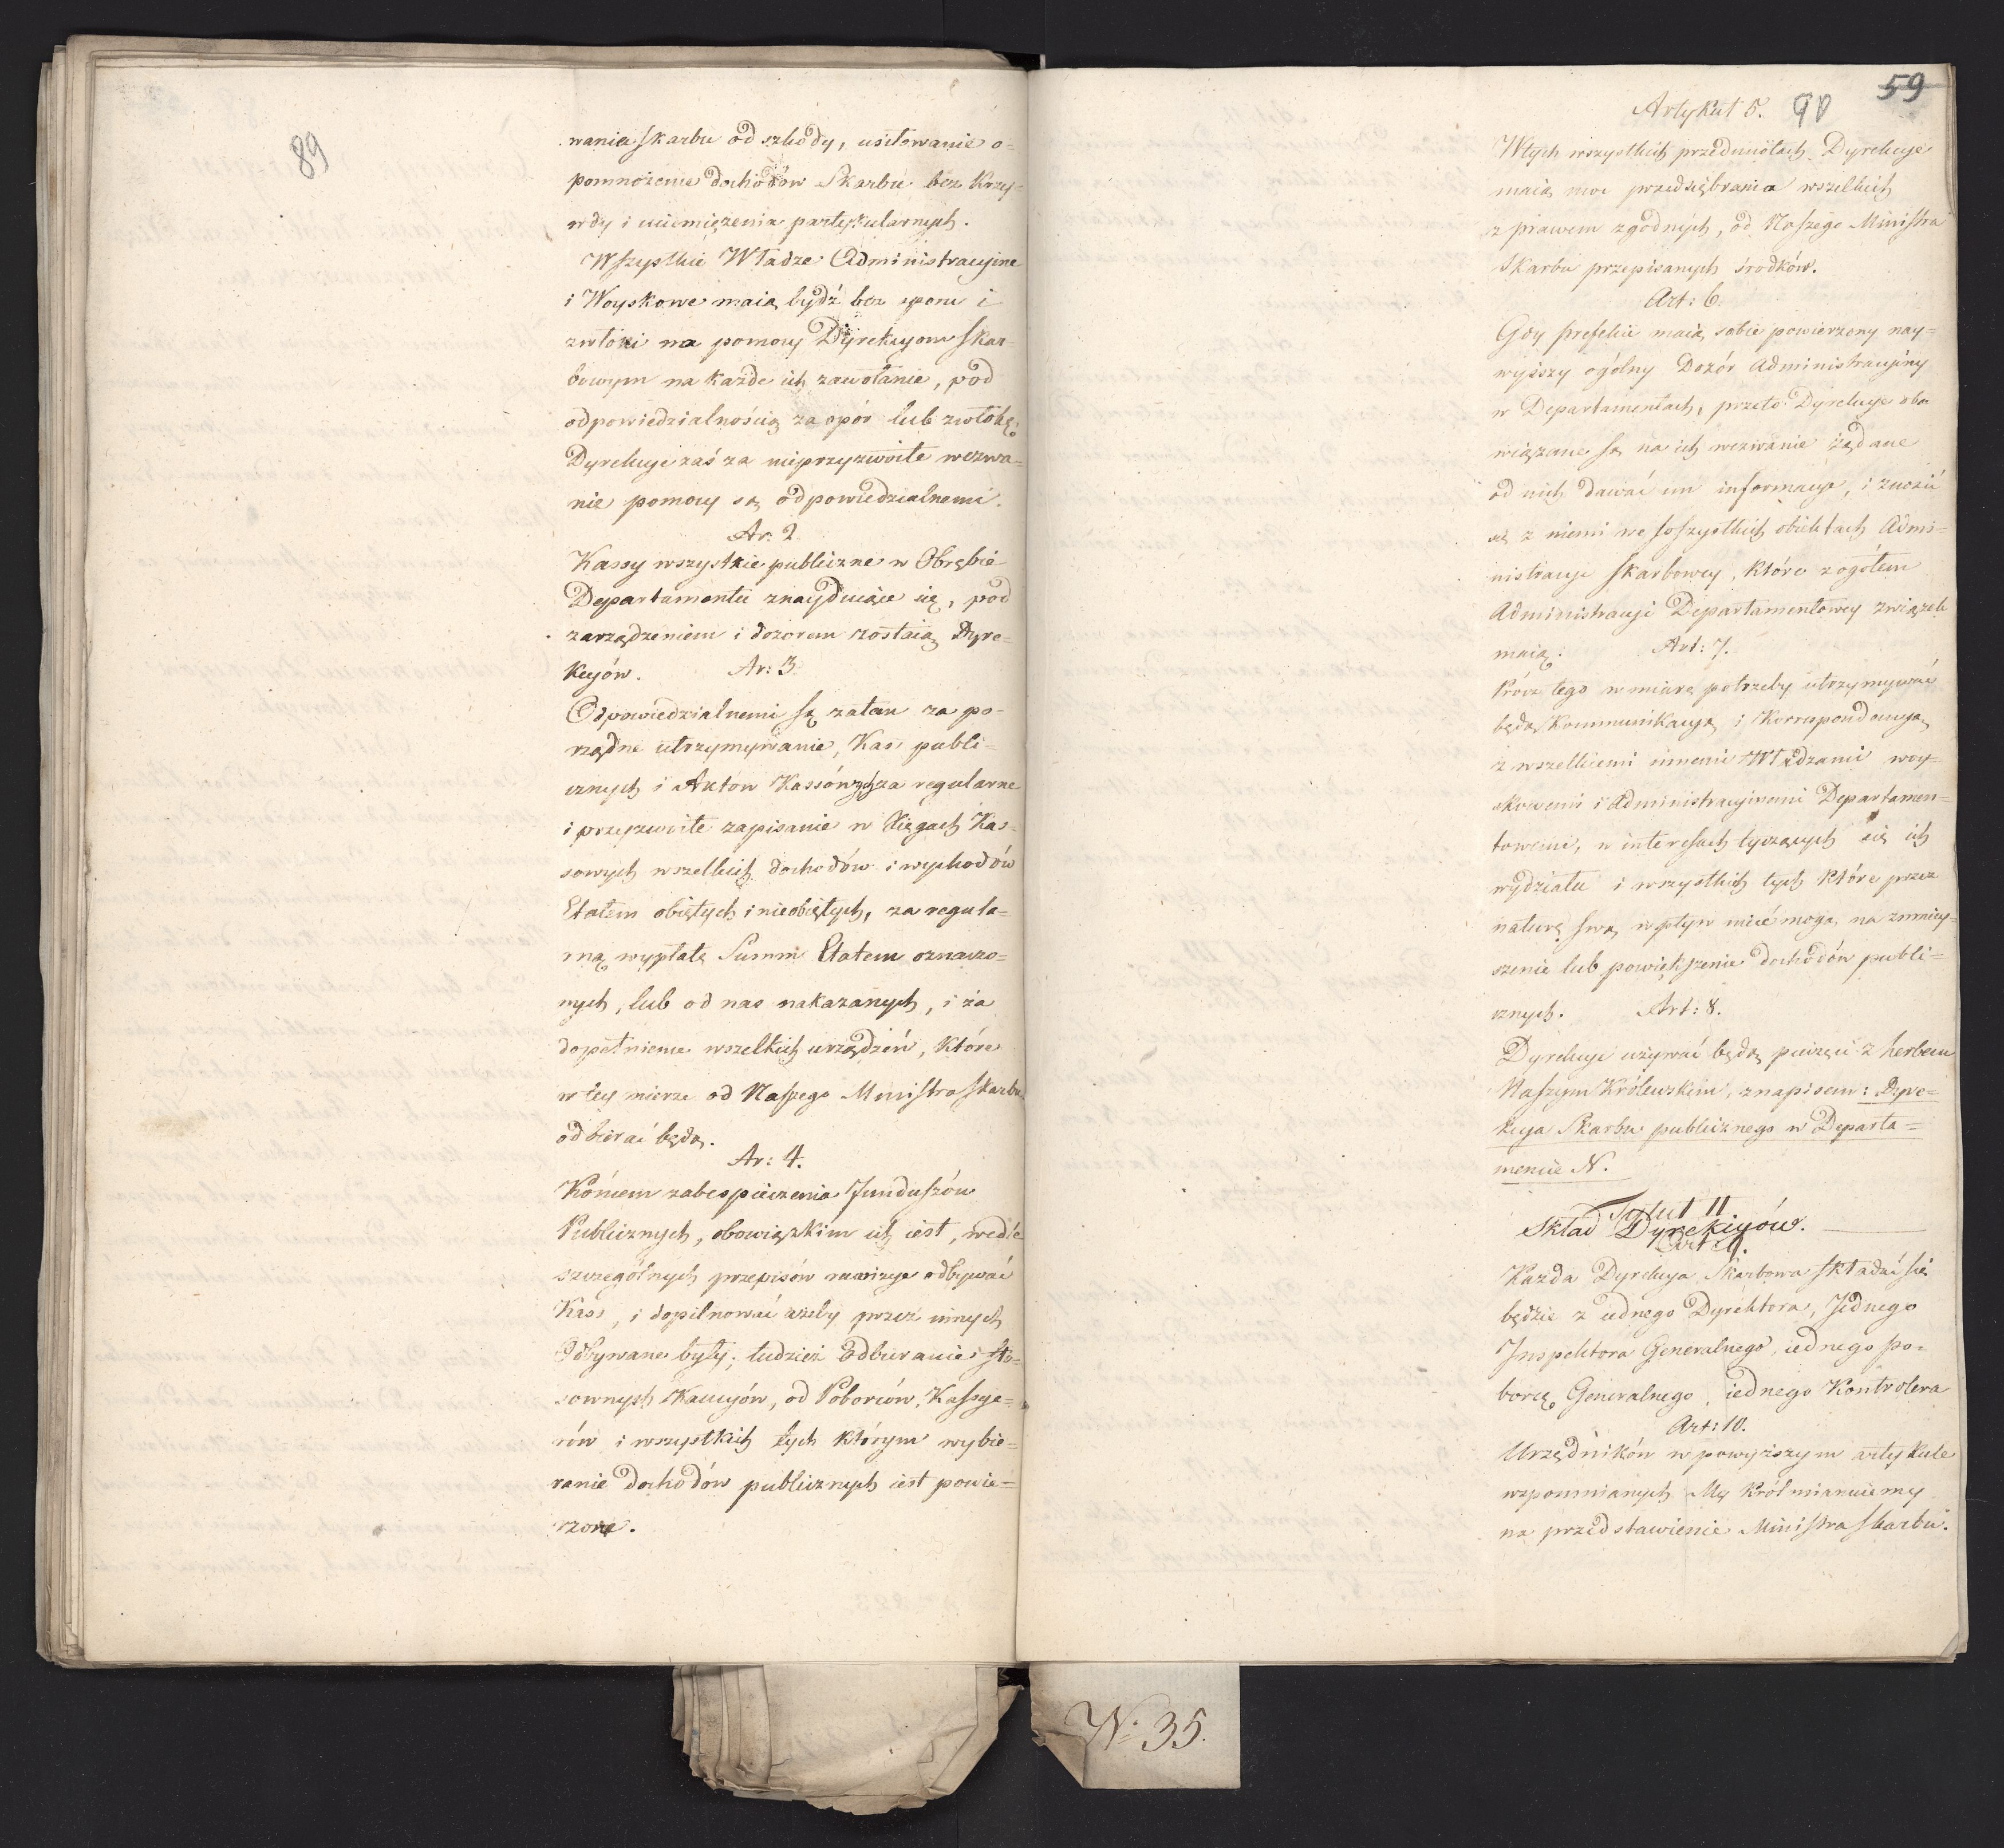 89
wania skarbu od szkody, usiłowanie o=
pomnożenie dochodow Skarbu bez Krzy=
wdy i uciemiężenia partykularnych.
Wszystkie Władze Administracyine
i Woyskowe maią bydź bez sporu i
zwłoki na pomocy Dyrekcyom skar=
bowym na każde ich zawołanie, pod
odpowiedzialnością za opór lub zwłokę;
Dyrekcye zaś za nieprzyzwoite wezwa=
nie pomocy są odpowiedzialnemi.
Ar: 2
Kassy wszystkie publiczne w Obrębie
Departamentu znayduiące się, pod
zarządzeniem i dozorem zostaią Dyre=
kcyów. Ar: 3
Odpowiedzialnemi są zatem za po=
rządne utrzymywanie, Kass publi=
cznych i Aktow Kassówych za regularne
i przyzwoite zapisanie w Xięgach Kas=
sowych wszelkich dochodów i wychodów
Etatem obiętych i nieobiętych, za regula=
rną wypłatę Summ Etatem oznaczo=
nych, lub od nas nakazanych, i za
dopełnienie wszelkich urządzeń, Które
w tey mierze od Naszego Ministra Skarbu
odbierać będą.
Ar: 4.
Końcem zabespieczenia Funduszów
Publicznych, obowiązkim ich iest, wedle
szczególnych przepisów rewizye odbywać
Kass, i dopilnować ażeby przez innych
Odbywane były; tudzież Odbieranie sto=
sownych Kaucyów, od Poborców, Kassye=
rów i wszystkich tych którym wybie=
ranie dochodów publicznych iest powie=
rzone.
59
Artykuł 5. 90
W tych wszystkich przedmiotach Dyrekcye
maią moc przedsiębrania wszelkich
z prawem zgodnych, od Naszego Ministra
Skarbu przepisanych środków.
Art: 6.
Gdy prefekci maią sobie powierzony nay=
wyższy ogólny Dozór Administracyiny
w Departamentach, przeto Dyrekcye obo
wiązane są na ich wezwanie żądane
od nich dawać im informacye, i znosić
się z niemi we wszystkich obiektach Admi=
nistracyi skarbowey, które z ogółem
Administracyi Departamentowey związek
maią. Art: 7.
Prócz tego w miarę potrzeby utrzymywać
będą Kommunikacyą i Korrespondencyą
z wszelkiemi innemi Władzami woy=
skowemi i Administracyinemi Departamen=
towemi, w interesach tyczących się ich
wydziału i wszystkich tych które przez
naturę swą wpływ mieć mogą na zmniey=
szenie lub powiększenie dochodów publi=
cznych. Art: 8.
Dyrekcye używać będą pieczęci z herbem
Naszym Królewskim, z napisem: Dyre=
kcya Skarbu publicznego w Departa=
mencie N.
Tytuł II
Skład Dyrekcyów.
Art: 9.
Każda Dyrekcya Skarbowa składać się
będzie z iednego Dyrektora, Jednego
Inspektora Generalnego, iednego po=
borcę Generalnego, iednego Kontrolera
Art: 10.
Urzędników w powyższym artykule
wspomnianych My Król mianuiemy
na przedstawienie Ministra skarbu.
N: 35.